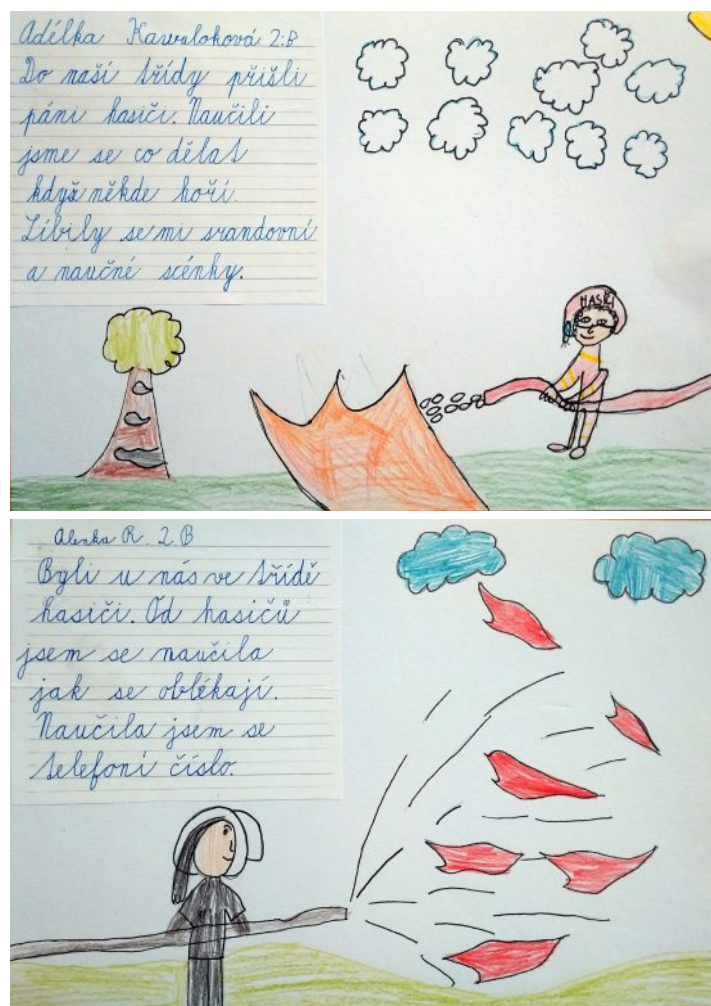 Adélka Kawuloková 2.B
Do naší třídy přišli
páni hasiči. Naučili
jsme se co dělat
když někde hoří.
Líbily se mi srandovní
a naučné scénky.
HASIČI
Alenka R. 2.B
Byli u nás ve třídě
hasiči. Od hasičů
jsem se naučila
jak se oblékají.
Naučila jsem se
telefoní číslo.